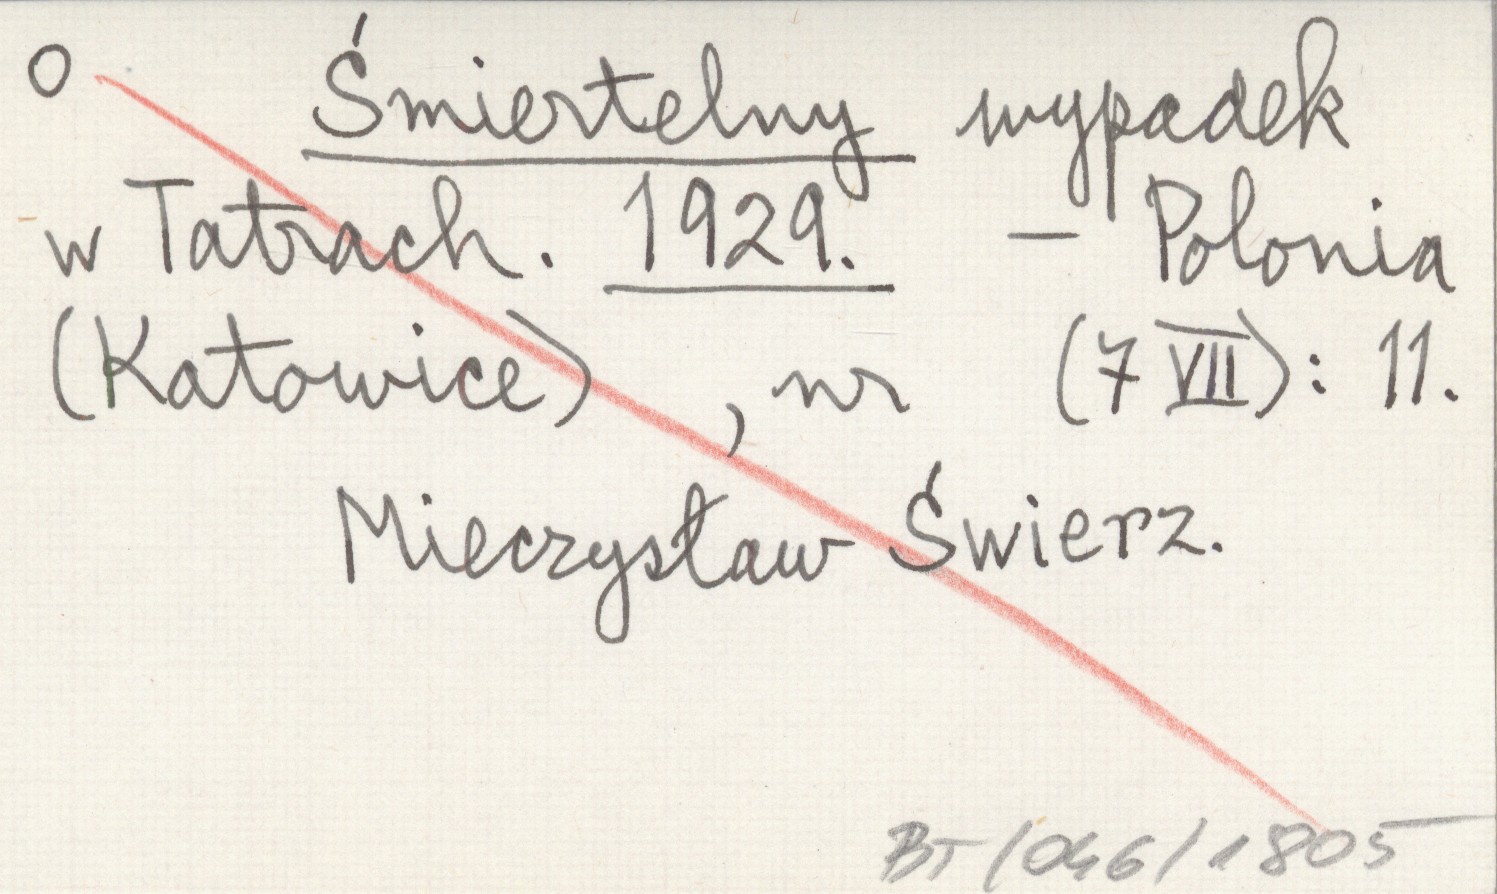 O Śmiertelny wypadek
w Tatrach. 1929. – Polonia
(Katowice), nr (7 VII): 11.
Mieczysław Świerz.
BT/046/1805